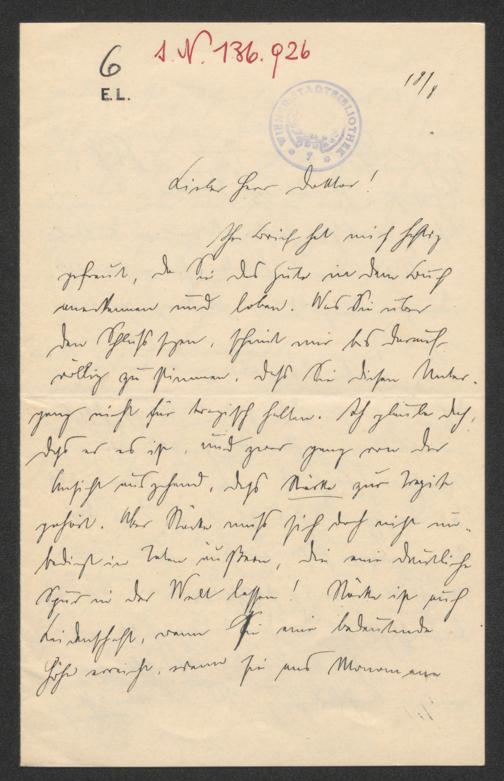 6
I. N. 136.926
E.L.
WIENER STADTBIBLIOTHEK
18/
Lieber Herr Doktor!
Ihr Brief hat mich
gefreut, da Sie das Gute in dem Buch
anerkennen und loben. Was Sie über
den Schluss sagen, scheint mir bis darauf
völlig zu stimmen, dass Sie diesen Unter-
gang nicht für tragisch halten. Ich glaube doch,
dass er es ist, und zwar ganz von der
Ansicht ausgehend, dass Stärke zur Tragik
gehört. Aber Stärke muss sich doch nicht un-
bedingt in Taten äußern, die eine deutliche
Spur in der Welt lassen! Stärke ist auch
Leidenschaft, wenn sie eine bedeutende
Höhe erreicht, wenn sie aus Monomanie